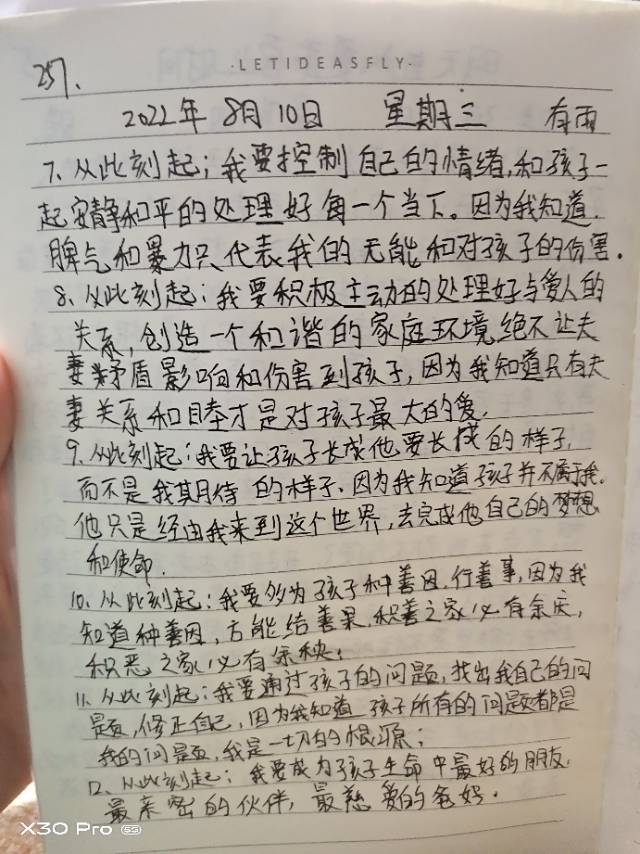 ·LETIDEASFLY·
257.
2022年 8月10日 星期三 有雨
7、从此刻起；我要控制自己的情绪，和孩子一
起安静和平的处理好每一个当下。因为我知道，
脾气和暴力只代表我的无能和对孩子的伤害。
8、从此刻起：我要积极主动的处理好与爱人的
关系，创造一个和谐的家庭环境，绝不让夫
妻矛盾影响和伤害到孩子，因为我知道只有夫
妻关系和睦才是对孩子最大的爱，
9、从此刻起：我要让孩子长成他要长成的样子，
而不是我期待的样子、因为我知道孩子并不属于我，
他只是经由我来到这个世界，去完成他自己的梦想
和使命.
10、从此刻起：我要多为孩子种善因，行善事，因为我
知道种善因，方能结善果，积善之家必有余庆，
积恶之家必有余秧；
11、从此刻起：我要通过孩子的问题，找出我自己的问
题，修正自己，因为我知道孩子所有的问题都是
我的问题，我是一切的根源；
12、从此刻起；我要成为孩子生命中最好的朋友，
最亲密的伙伴，最慈爱的爸妈.
X30 Pro 5G